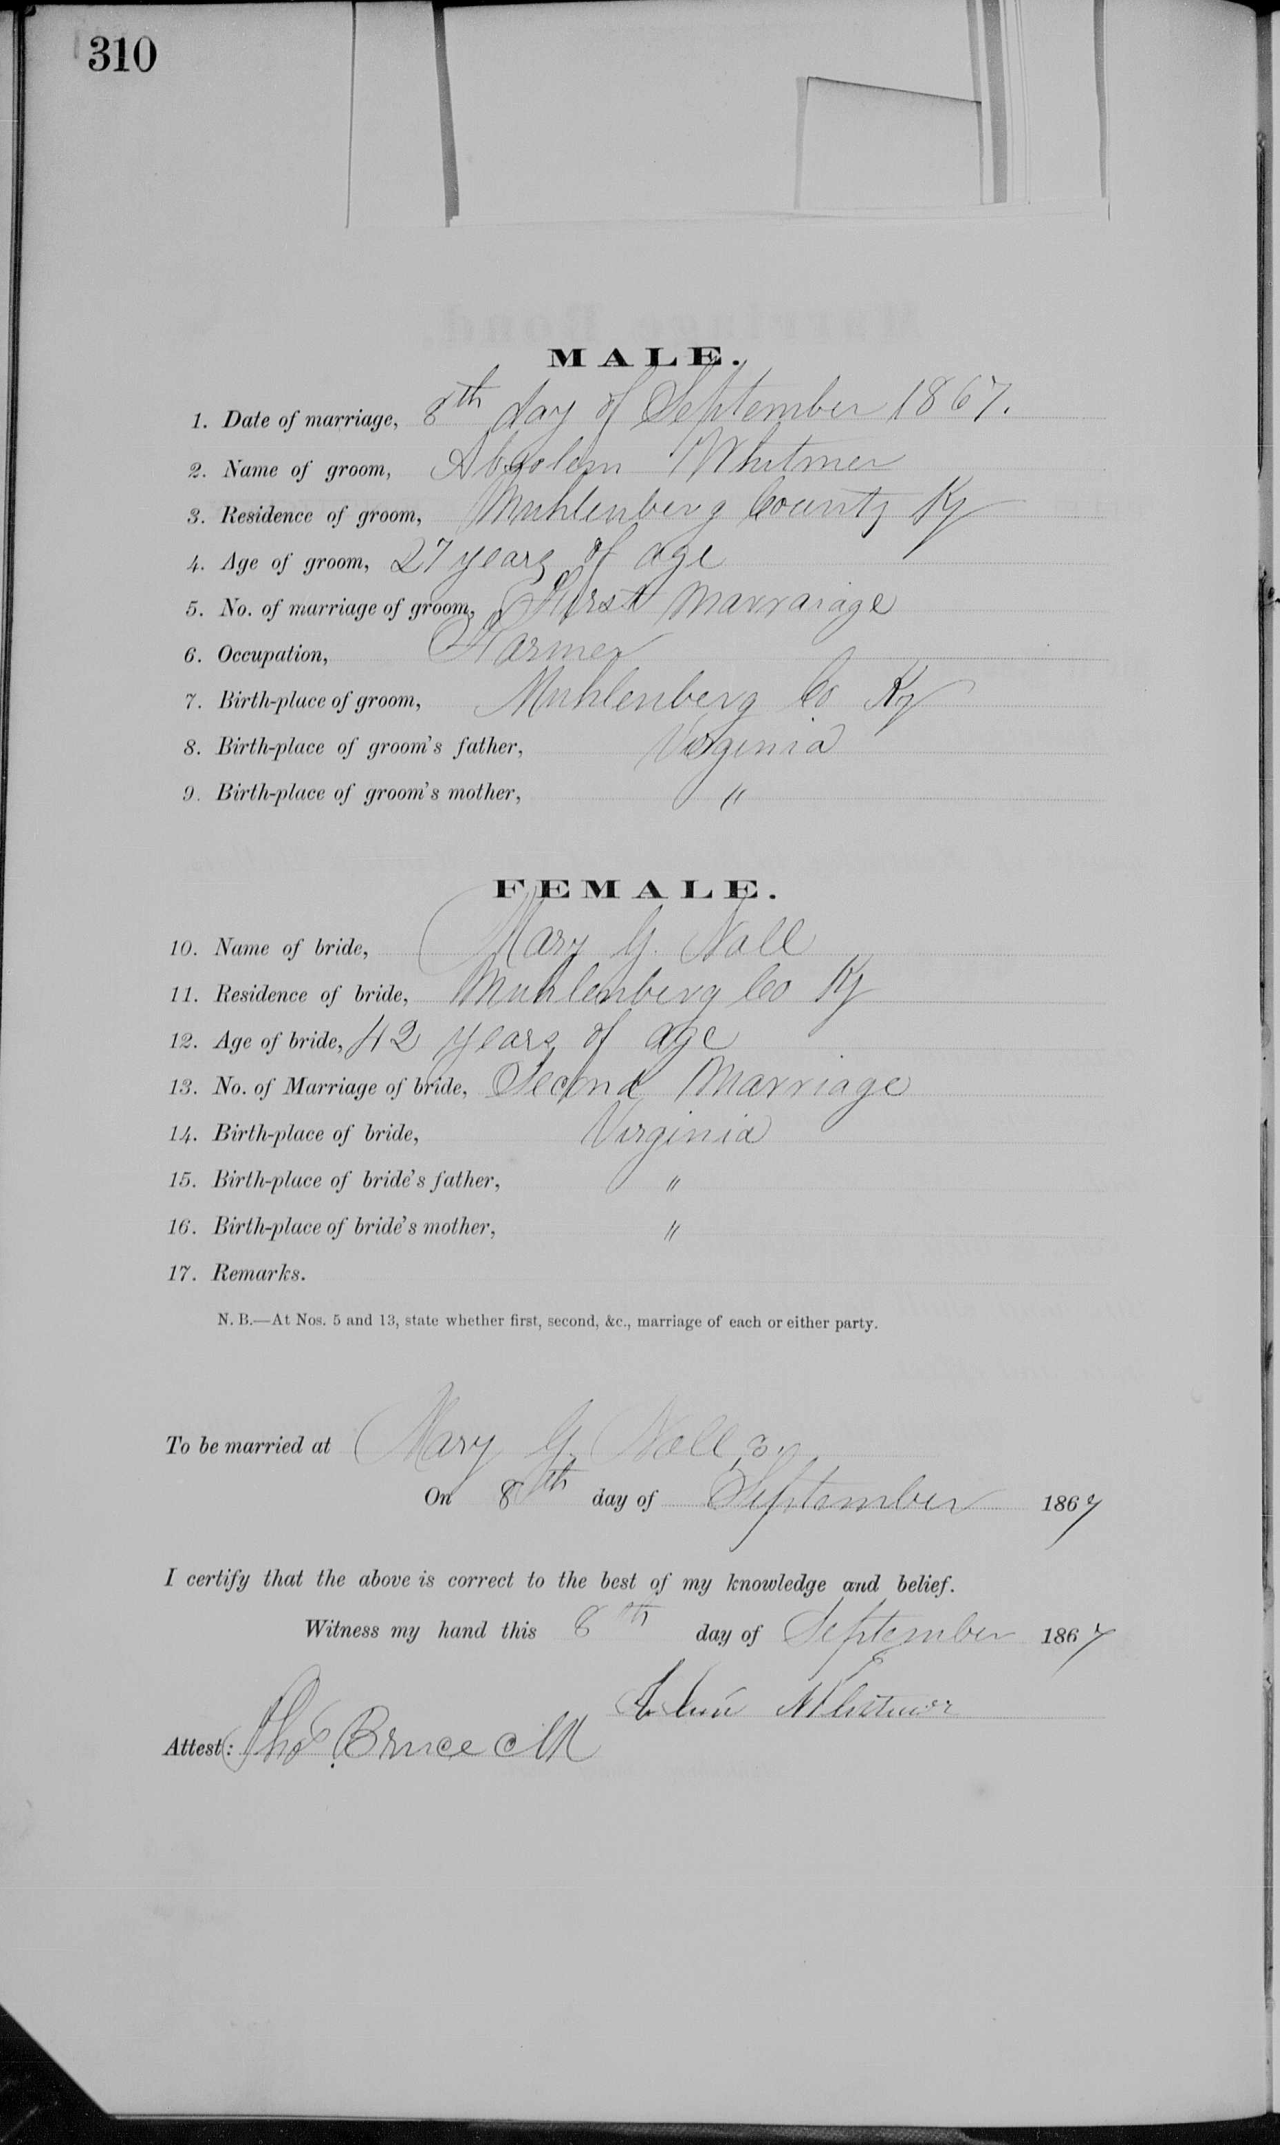 310
MALE.
1. Date of marriage, 8th day of September 1867.
2. Name of groom, Absolem Whitmer
3. Residence of groom, Muhlenberg County Ky
4. Age of groom, 27 years of age
5. No. of marriage of groom, First Marraiage
6. Occupation, Farmer
7. Birth-place of groom, Muhlenberg Co Ky
8. Birth-place of groom's father, Virginia
9. Birth-place of groom's mother, "
FEMALE.
10. Name of bride, Mary G. Noll
11. Residence of bride, Muhlenberg Co Ky
12. Age of bride, 42 years of age
13. No. of Marriage of bride, Second Marriage
14. Birth-place of bride, Virginia
15. Birth-place of bride's father, "
16. Birth-place of bride's mother, "
17. Remarks.
N. B.—At Nos. 5 and 13, state whether first, second, &c., marriage of each or either party.
To be married at Mary G. Noll
On 8th day of September 1867
I certify that the above is correct to the best of my knowledge and belief.
Witness my hand this 8th day of September 1867
Whitmer
Attest: Thos Bruce Clk